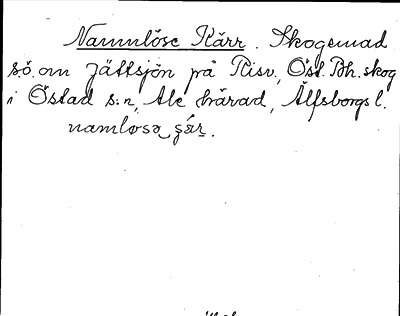 Namnlöse Kärr. Skogsmad
s.ö. om Jättsjön på Risv., Öst. Bh. skog
i Östad s:n, Ale härad, Älfsborgs l.
namlosa